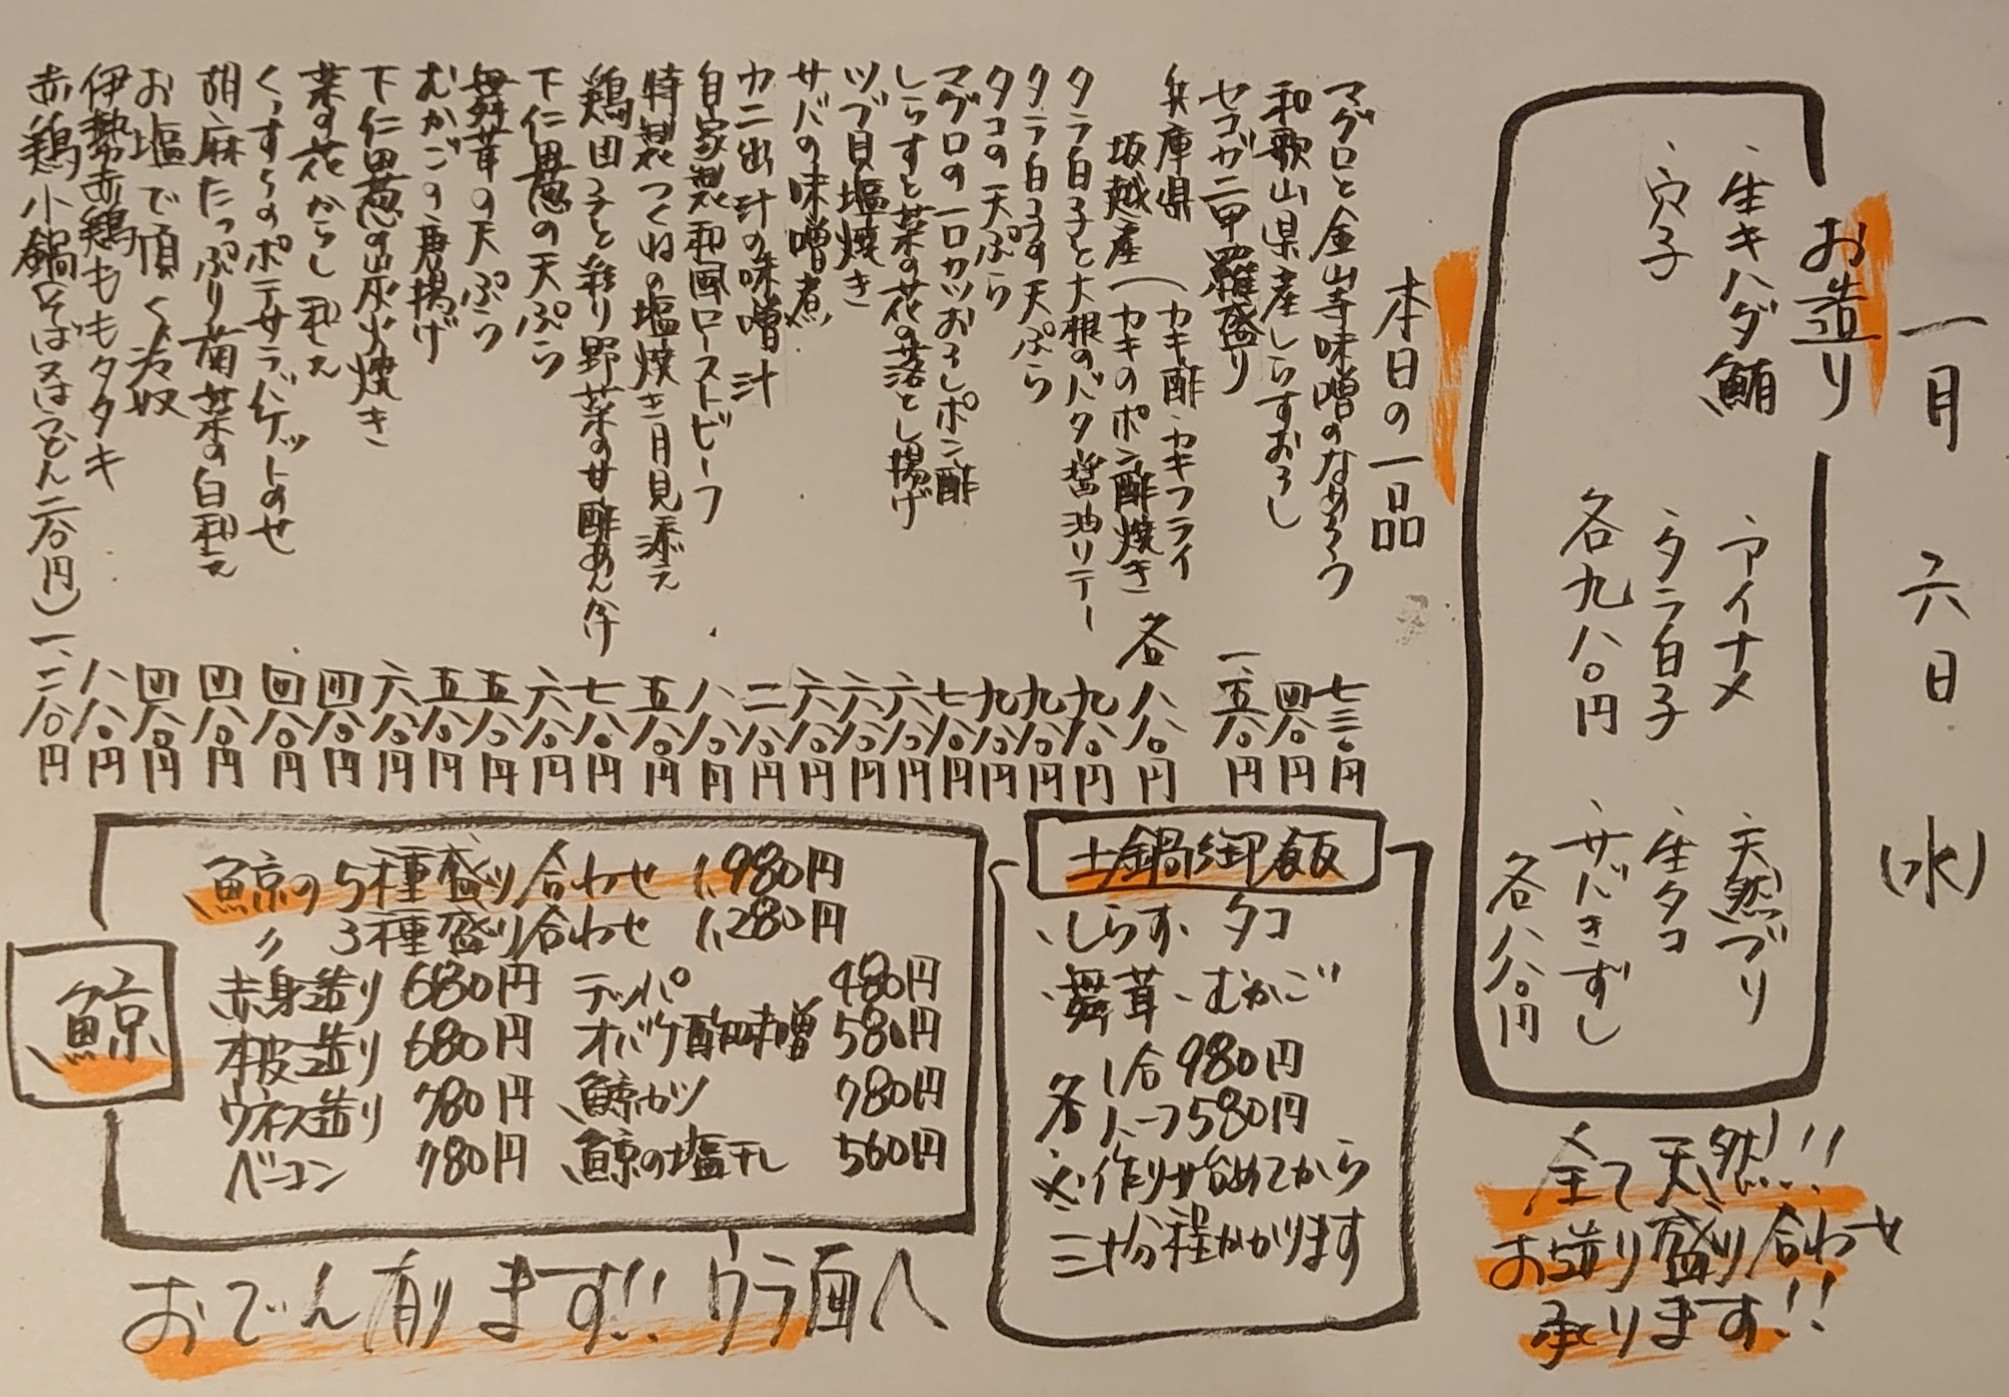 一月 六日 (水)
お造り
・生キハダ鮪 ・アイナメ ・天然ブリ
・穴子 ・タラ白子 ・生タコ
各九八〇円 ・サバきずし
各八八〇円
全て天然!!
お造り盛り合わせ
承ります!!
本日の一品
マグロと金山寺味噌のなめろう 七三〇円
和歌山県産しらすおろし 四八〇円
セコガニ甲羅盛り 一、五八〇円
兵庫県 (カキ酢・カキフライ
坂越産 (カキのポン酢焼き 各八八〇円
タラ白子と大根のバタ醤油ソテー 九八〇円
タラ白子の天ぷら 九八〇円
タコの天ぷら 九八〇円
マグロの一口カツおろしポン酢 七八〇円
しらすと菜の花の落とし揚げ 六八〇円
ツブ貝塩焼き 六八〇円
サバの味噌煮 六八〇円
カニ出汁の味噌汁 二八〇円
自家製和風ローストビーフ 八八〇円
特製つくねの塩焼き 月見添え 五八〇円
鶏団子と彩り野菜の甘酢あんかけ 七八〇円
下仁田葱の天ぷら 六八〇円
舞茸の天ぷら 五八〇円
むかごの唐揚げ 五八〇円
下仁田葱の炭火焼き 六八〇円
菜の花からし和え 四八〇円
くっすらのポテサラバゲットのせ 四八〇円
胡麻たっぷり菊菜の白和え 四八〇円
お塩で頂く冷奴 四八〇円
伊勢赤鶏ももタタキ 八八〇円
赤鶏小鍋(そば又はうどん二八〇円) 一、二八〇円
土鍋御飯
・しらす ・タコ
・舞茸 ・むかご
各 1合 980円
ハーフ580円
※作り始めてから
三十分程かかります
鯨
鯨の5種盛り合わせ 1,980円
〃 3種盛り合わせ 1,280円
赤身造り 680円 テッパ 480円
本皮造り 680円 オバケ酢味噌 580円
ウネス造り 780円 鯨カツ 780円
ベーコン 780円 鯨の塩干し 560円
おでん有ります!! ウラ面へ